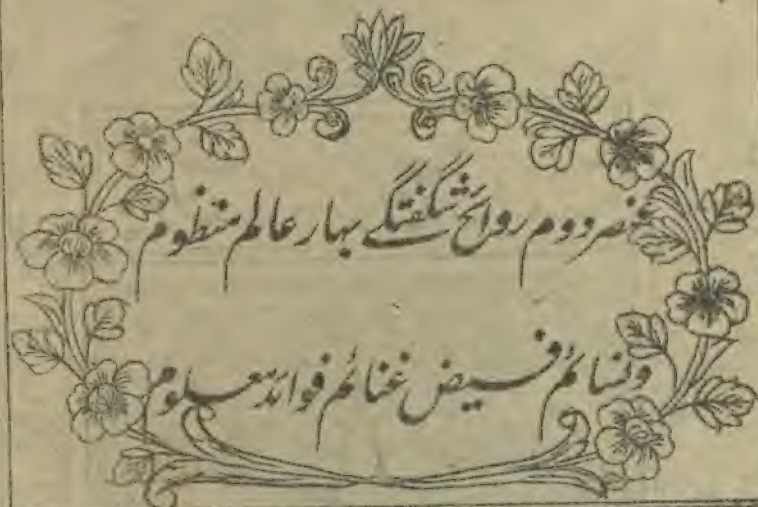 عنصر دوم روائح شگفتگے بهار عالم منظوم
و نسائم فیض غنائم فوائد معلوم